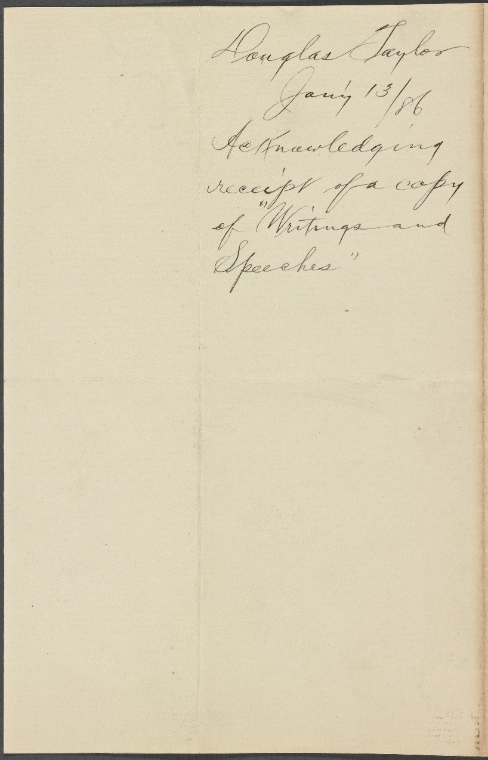 Douglas Taylor
Jan'y 13/86
Acknowledging
receipt of a copy
of "Writings and
Speeches"